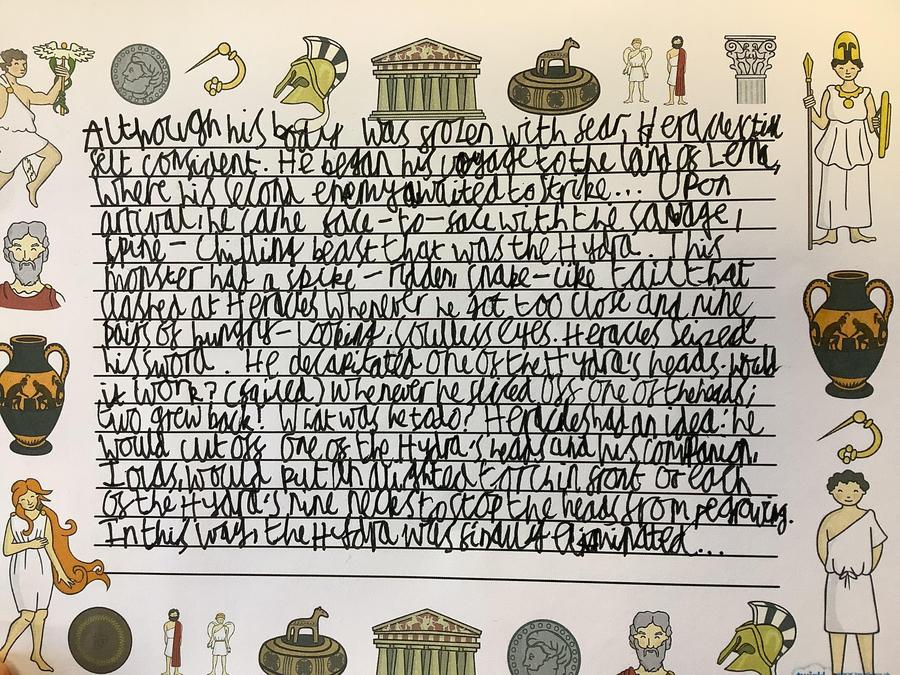 Although his body was frozen with fear, Heracles felt
self confident. He began his voyage to the land of Lerna,
where his second enemy awaited to strike... Upon
arrival he came face-to-face with the savage,
spine-chilling beast that was the Hydra. This
monster had a spike-ridden snake-like tail that
clashed at Heracles whenever he got too close and nine
pairs of hungry-looking, soulless eyes. Heracles seized
his sword. He decapitated one of the Hydra's heads. Would
it work? (failed) Whenever he sliced off one of the heads;
two grew back! What was he to do? Heracles had an idea: he
would cut off one of the Hydra's heads and his companion,
Iolas, would put an alighted torch in front of each
of the Hydra's nine necks to stop the heads from regrowing.
In this way, the Hydra was finally eliminated...